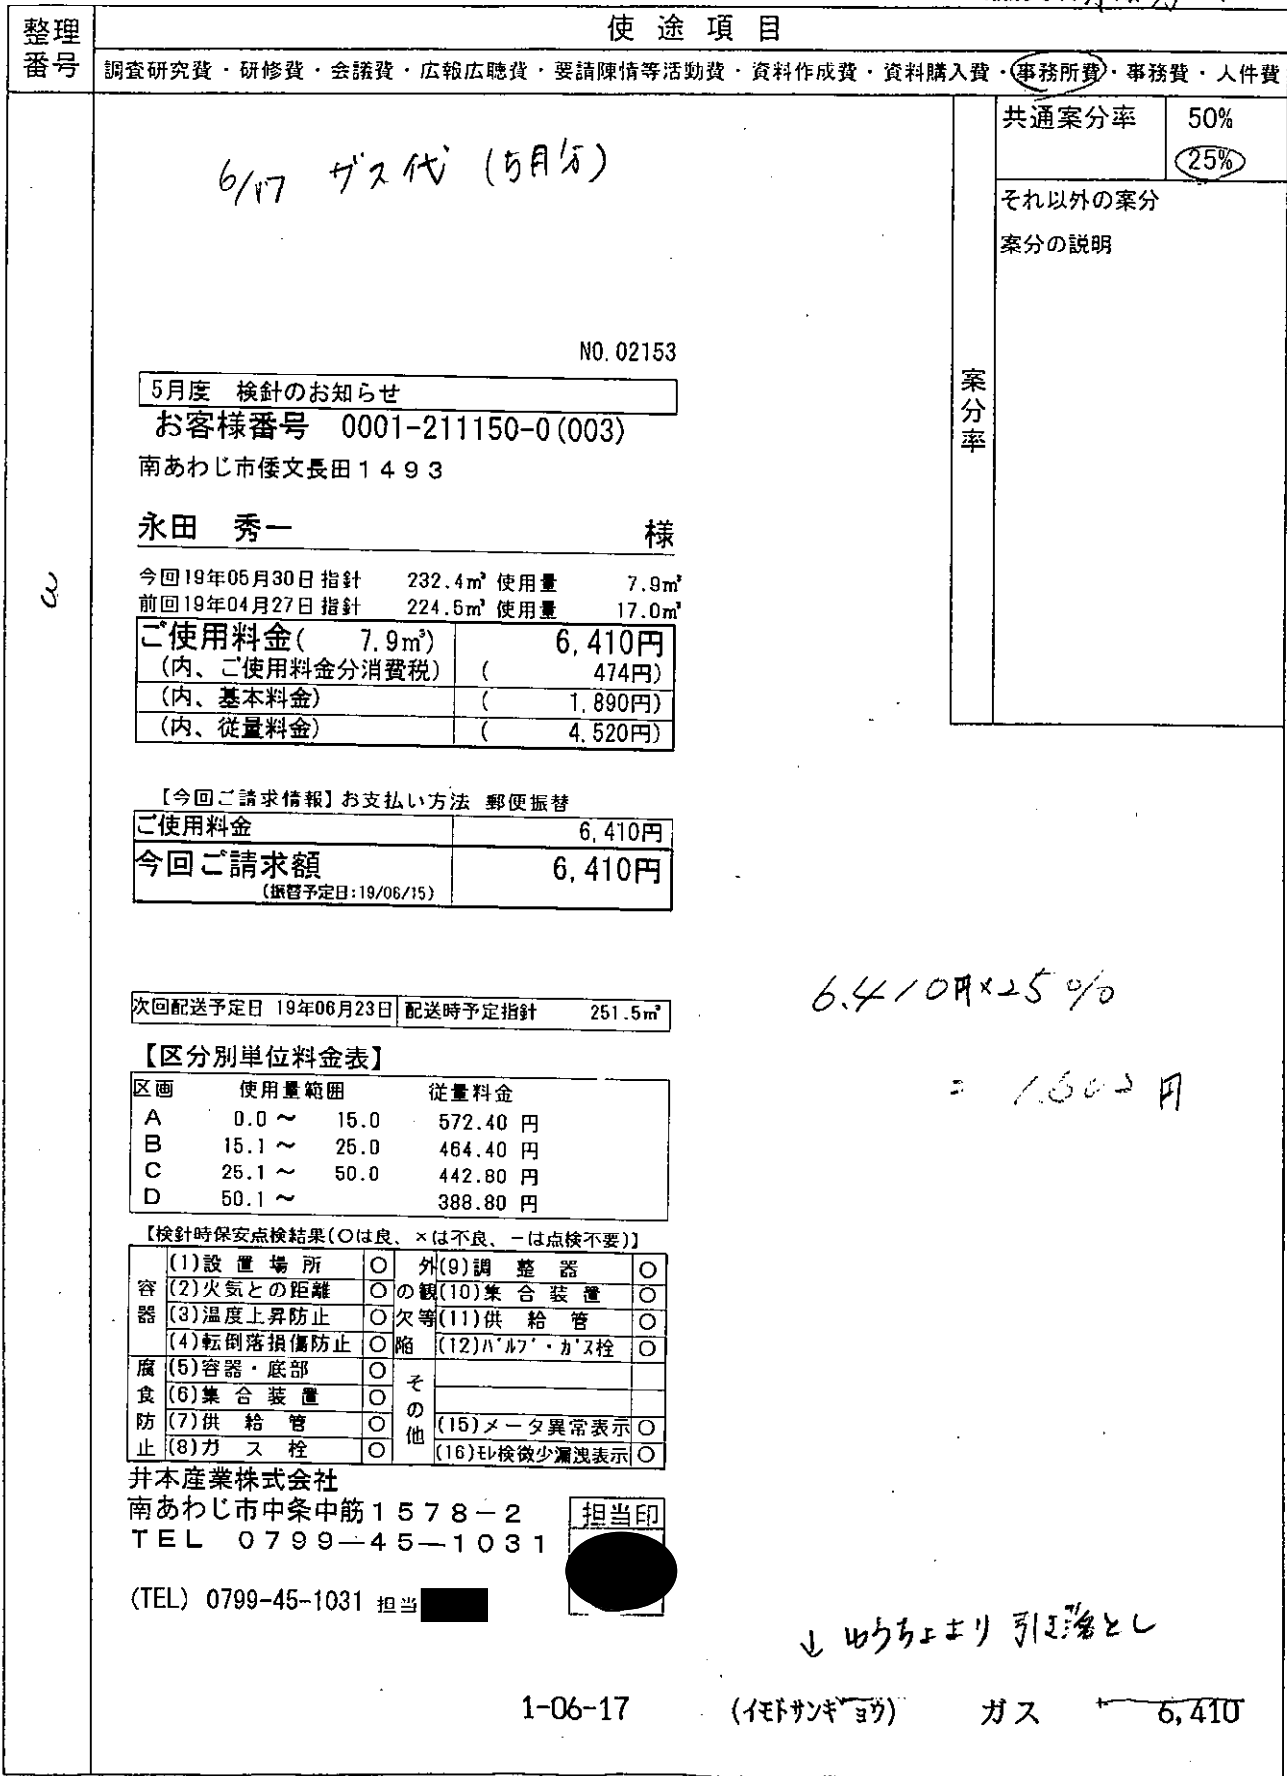 整理番号
使途項目
調査研究費・研修費・会議費・広報広聴費・要請陳情等活動費・資料作成費・資料購入費・事務所費・事務費・人件費
共通案分率 50%
25%
それ以外の案分
案分の説明
案分率
3
6/17 ガス代 (5月分)
NO.02153
5月度 検針のお知らせ
お客様番号 0001-211150-0(003)
南あわじ市倭文長田1493
永田 秀一 様
今回19年05月30日指針 232.4m³ 使用量 7.9m³
前回19年04月27日指針 224.5m³ 使用量 17.0m³
ご使用料金( 7.9m³) 6,410円
(内、ご使用料金分消費税) ( 474円)
(内、基本料金) ( 1,890円)
(内、従量料金) ( 4,520円)
【今回ご請求情報】お支払い方法 郵便振替
ご使用料金 6,410円
今回ご請求額 6,410円
(振替予定日:19/06/15)
6,410円×25%
= 1,602円
次回配送予定日 19年06月23日 配送時予定指針 251.5m³
【区分別単位料金表】
区画 使用量範囲 従量料金
A 0.0～ 15.0 572.40 円
B 15.1～ 25.0 464.40 円
C 25.1～ 50.0 442.80 円
D 50.1～ 388.80 円
【検針時保安点検結果(○は良、×は不良、－は点検不要)】
容器 (1)設置場所 ○ 外観の欠陥等 (9)調整器 ○
(2)火気との距離 ○ (10)集合装置 ○
(3)温度上昇防止 ○ (11)供給管 ○
(4)転倒落損傷防止 ○ (12)バルブ・ガス栓 ○
腐食防止 (5)容器・底部 ○ その他
(6)集合装置 ○
(7)供給管 ○ (15)メータ異常表示 ○
(8)ガス栓 ○ (16)モレ検微少漏洩表示 ○
井本産業株式会社
南あわじ市中条中筋1578－2
TEL 0799―45―1031
担当印
(TEL) 0799-45-1031 担当
↓ ゆうちょより 引き落とし
1-06-17 (イモトサンギョウ) ガス 6,410